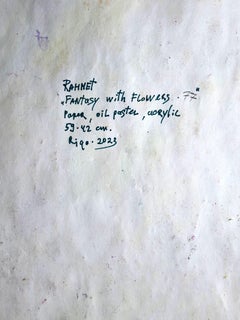 RAHMET
„FANTASY with FLOWERS . 77"
Paper, oil pastel, acrylic
59.42 cm.
Riga. 2023